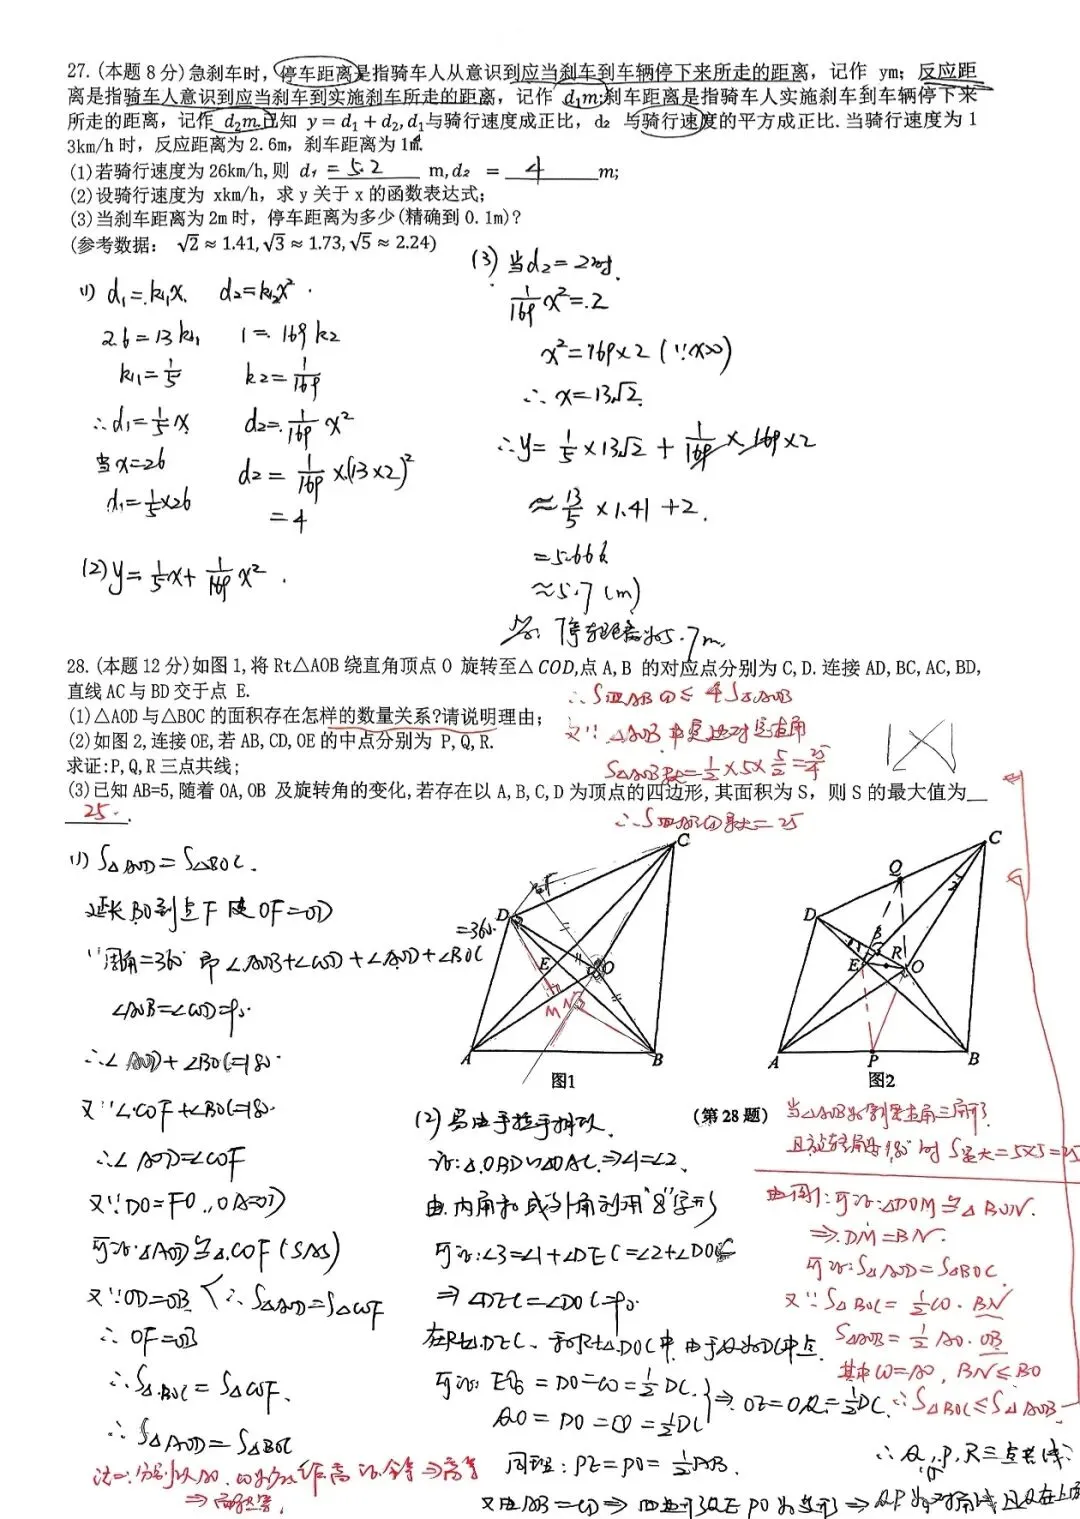 27.(本题8分)急刹车时,停车距离是指骑车人从意识到应当刹车到车辆停下来所走的距离，记作 ym；反应距
离是指骑车人意识到应当刹车到实施刹车所走的距离，记作 d₁m;刹车距离是指骑车人实施刹车到车辆停下来
所走的距离，记作 d₂m.已知 y=d₁+d₂,d₁与骑行速度成正比，d₂ 与骑行速度的平方成正比.当骑行速度为1
3km/h时，反应距离为2.6m，刹车距离为1m.
(1)若骑行速度为26km/h,则 d₁ = 5.2 m,d₂ = 4 m;
(2)设骑行速度为 xkm/h，求y关于x的函数表达式；
(3)当刹车距离为2m时，停车距离为多少(精确到0.1m)?
(参考数据： √2≈1.41,√3≈1.73,√5≈2.24)
(1) d₁=k₁x. d₂=k₂x².
2.6=13k₁ 1=169k₂
k₁=1/5 k₂=1/169
∴d₁=1/5x d₂=1/169x²
当x=26 d₂=1/169×(13×2)²
d₁=1/5×26 =4
(2) y=1/5x+1/169x².
(3) 当d₂=2时.
1/169x²=2
x²=169×2(∵x>0)
∴x=13√2.
∴y=1/5×13√2+1/169×169×2
≈13/5×1.41+2.
=5.666
≈5.7(m)
答：停车距离为5.7m.
28.(本题12分)如图1,将Rt△AOB绕直角顶点O 旋转至△COD,点A,B 的对应点分别为C,D.连接AD,BC,AC,BD,
直线AC与BD交于点 E.
(1)△AOD与△BOC的面积存在怎样的数量关系?请说明理由;
(2)如图2,连接OE,若AB,CD,OE的中点分别为 P,Q,R.
求证:P,Q,R三点共线;
(3)已知AB=5,随着OA,OB 及旋转角的变化,若存在以A,B,C,D为顶点的四边形,其面积为S，则S的最大值为
25.
∴S四ABCD≤4S△AOB
又∵△AOB中定边对定直角
S△AOB最大=1/2×5×5/2=25/4
∴S四ABCD最大=25
(1) S△AOD=S△BOC.
延长BO到点F使OF=OD
∵周角=360° 即∠AOB+∠COD+∠AOD+∠BOC
=360.
∠AOB=∠COD=90°
∴∠AOD+∠BOC=180°
又∵∠COF+∠BOC=180°
∴∠AOD=∠COF
又∵DO=FO,
可证△AOD≌△COF(SAS)
又∵OD=OB ∴S△AOD=S△COF
∴OF=OB
∴S△BOC=S△COF.
∴S△AOD=S△BOC
C
D
E
O
M
N
A
B
图1
C
Q
D
E
R
O
A
P
B
图2
(第28题)
(2) 易由手拉手模型.
证:△OBD∽△OAC.⇒∠1=∠2.
由内角和或外角利用"8"字形
可证:∠3=∠1+∠DEC=∠2+∠DOC
⇒∠DEC=∠DOC=90°
在Rt△DEC、和Rt△DOC中,由于Q为DC中点.
⇒OE=OQ=1/2DC
同理:PE=PO=1/2AB.
当△AOB为等腰直角三角形
且旋转角为180°时 S最大=5×5=25
由图1:可证:△DOM≌△BON.
⇒DM=BN.
可证:S△AOD=S△BOC
又∵S△BOC=1/2CO·BN
S△AOB=1/2AO·OB
其中CO=AO, BN≤BO
∴S△BOC≤S△AOB
∴Q,P,R三点共线